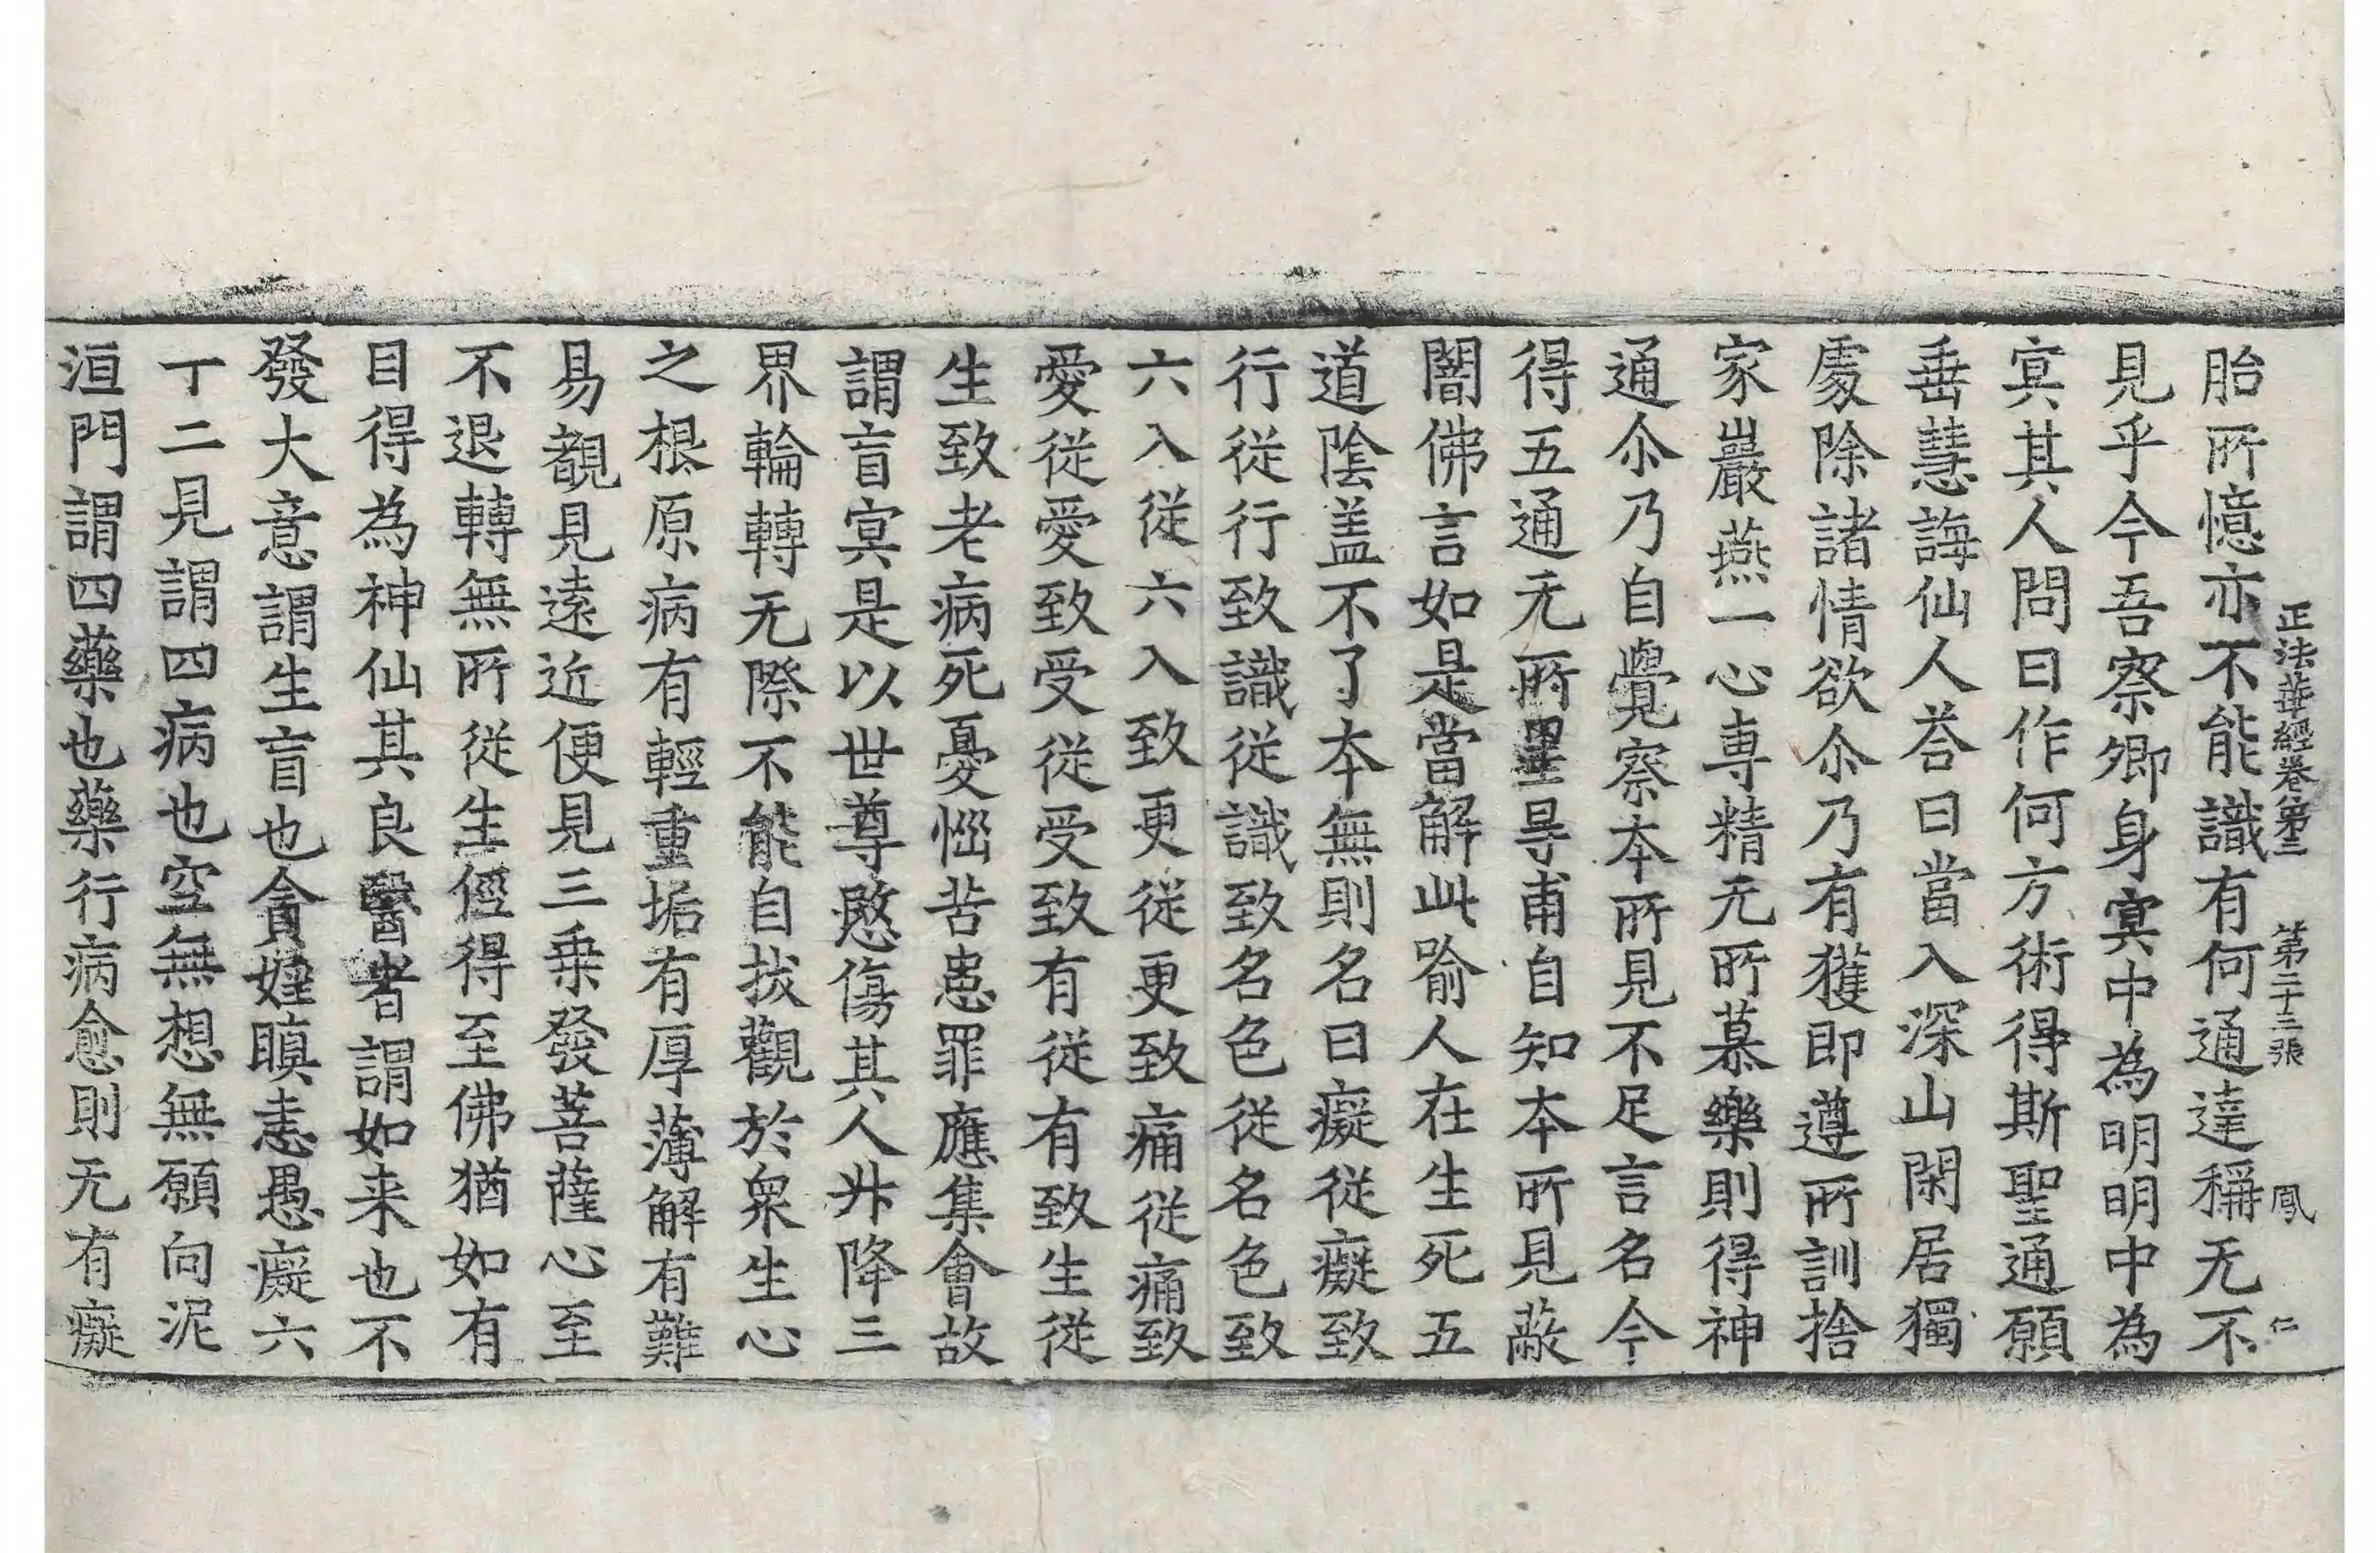 正法華經卷第三　第二十三張　鳳　仁
胎所憶亦不能識有何通達稱无不
見乎今吾察卿身冥中為明明中為
冥其人問曰作何方術得斯聖通願
垂慧誨仙人荅曰當入深山閑居獨
處除諸情欲尒乃有獲即遵所訓捨
家巖燕一心專精无所慕樂則得神
通尒乃自覺察本所見不足言名今
得五通无所罣㝵甫自知本所見蔽
闇佛言如是當解此喻人在生死五
道陰盖不了本無則名曰癡從癡致
行從行致識從識致名色從名色致
六入從六入致更從更致痛從痛致
愛從愛致受從受致有從有致生從
生致老病死憂惱苦患罪應集會故
謂盲冥是以世尊愍傷其人昇降三
界輪轉无際不能自拔觀於衆生心
之根原病有輕重垢有厚薄解有難
易覩見遠近便見三乗發菩薩心至
不退轉無所從生徑得至佛猶如有
目得為神仙其良醫者謂如来也不
發大意謂生盲也貪婬瞋恚愚癡六
十二見謂四病也空無想無願向泥
洹門謂四藥也藥行病愈則无有癡